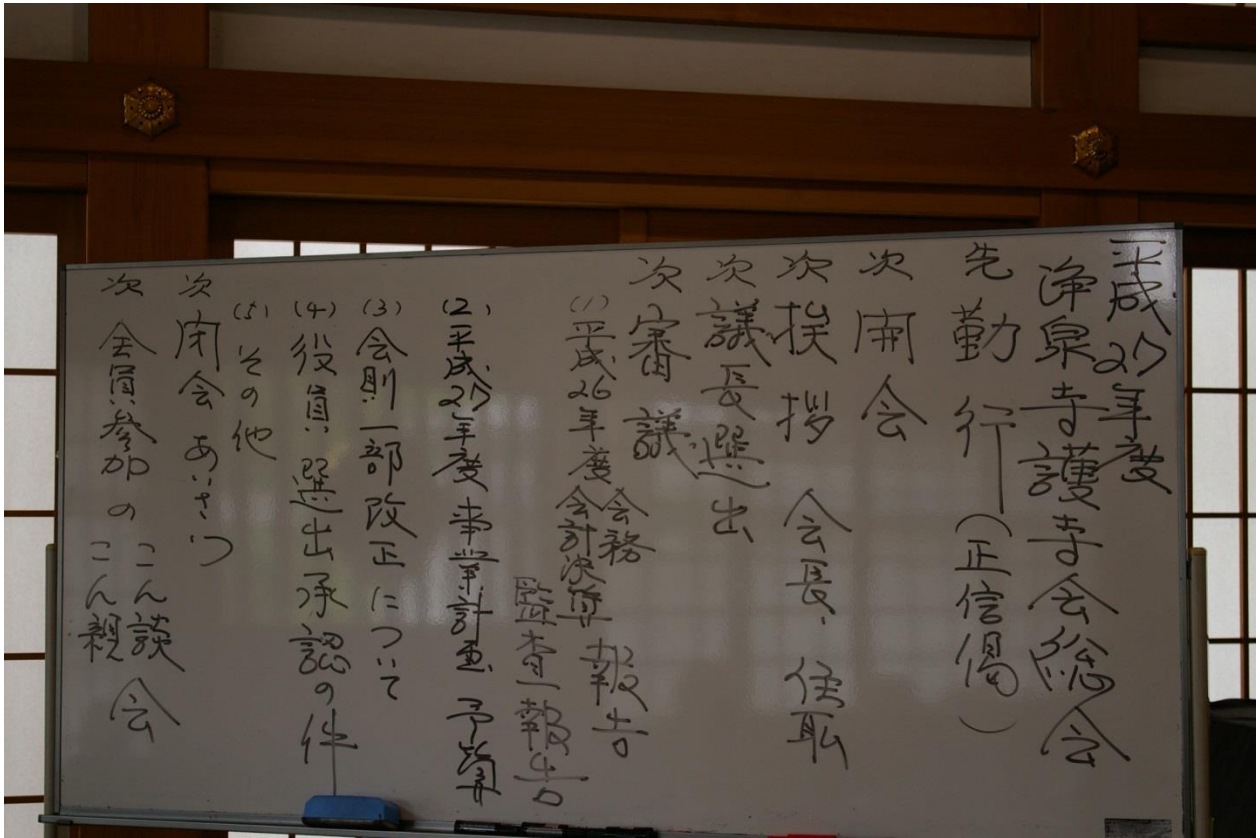 平成27年度
浄泉寺護寺会総会
先 勤行(正信偈)
次 開会
次 挨拶 会長、住職
次 議長選出
次 審議
(1) 平成26年度 会務 会計決算 報告
監査報告
(2) 平成27年度 事業計画 予算
(3) 会則一部改正について
(4) 役員選出承認の件
(5) その他
次 閉会あいさつ
次 全員参加の こん談 こん親 会